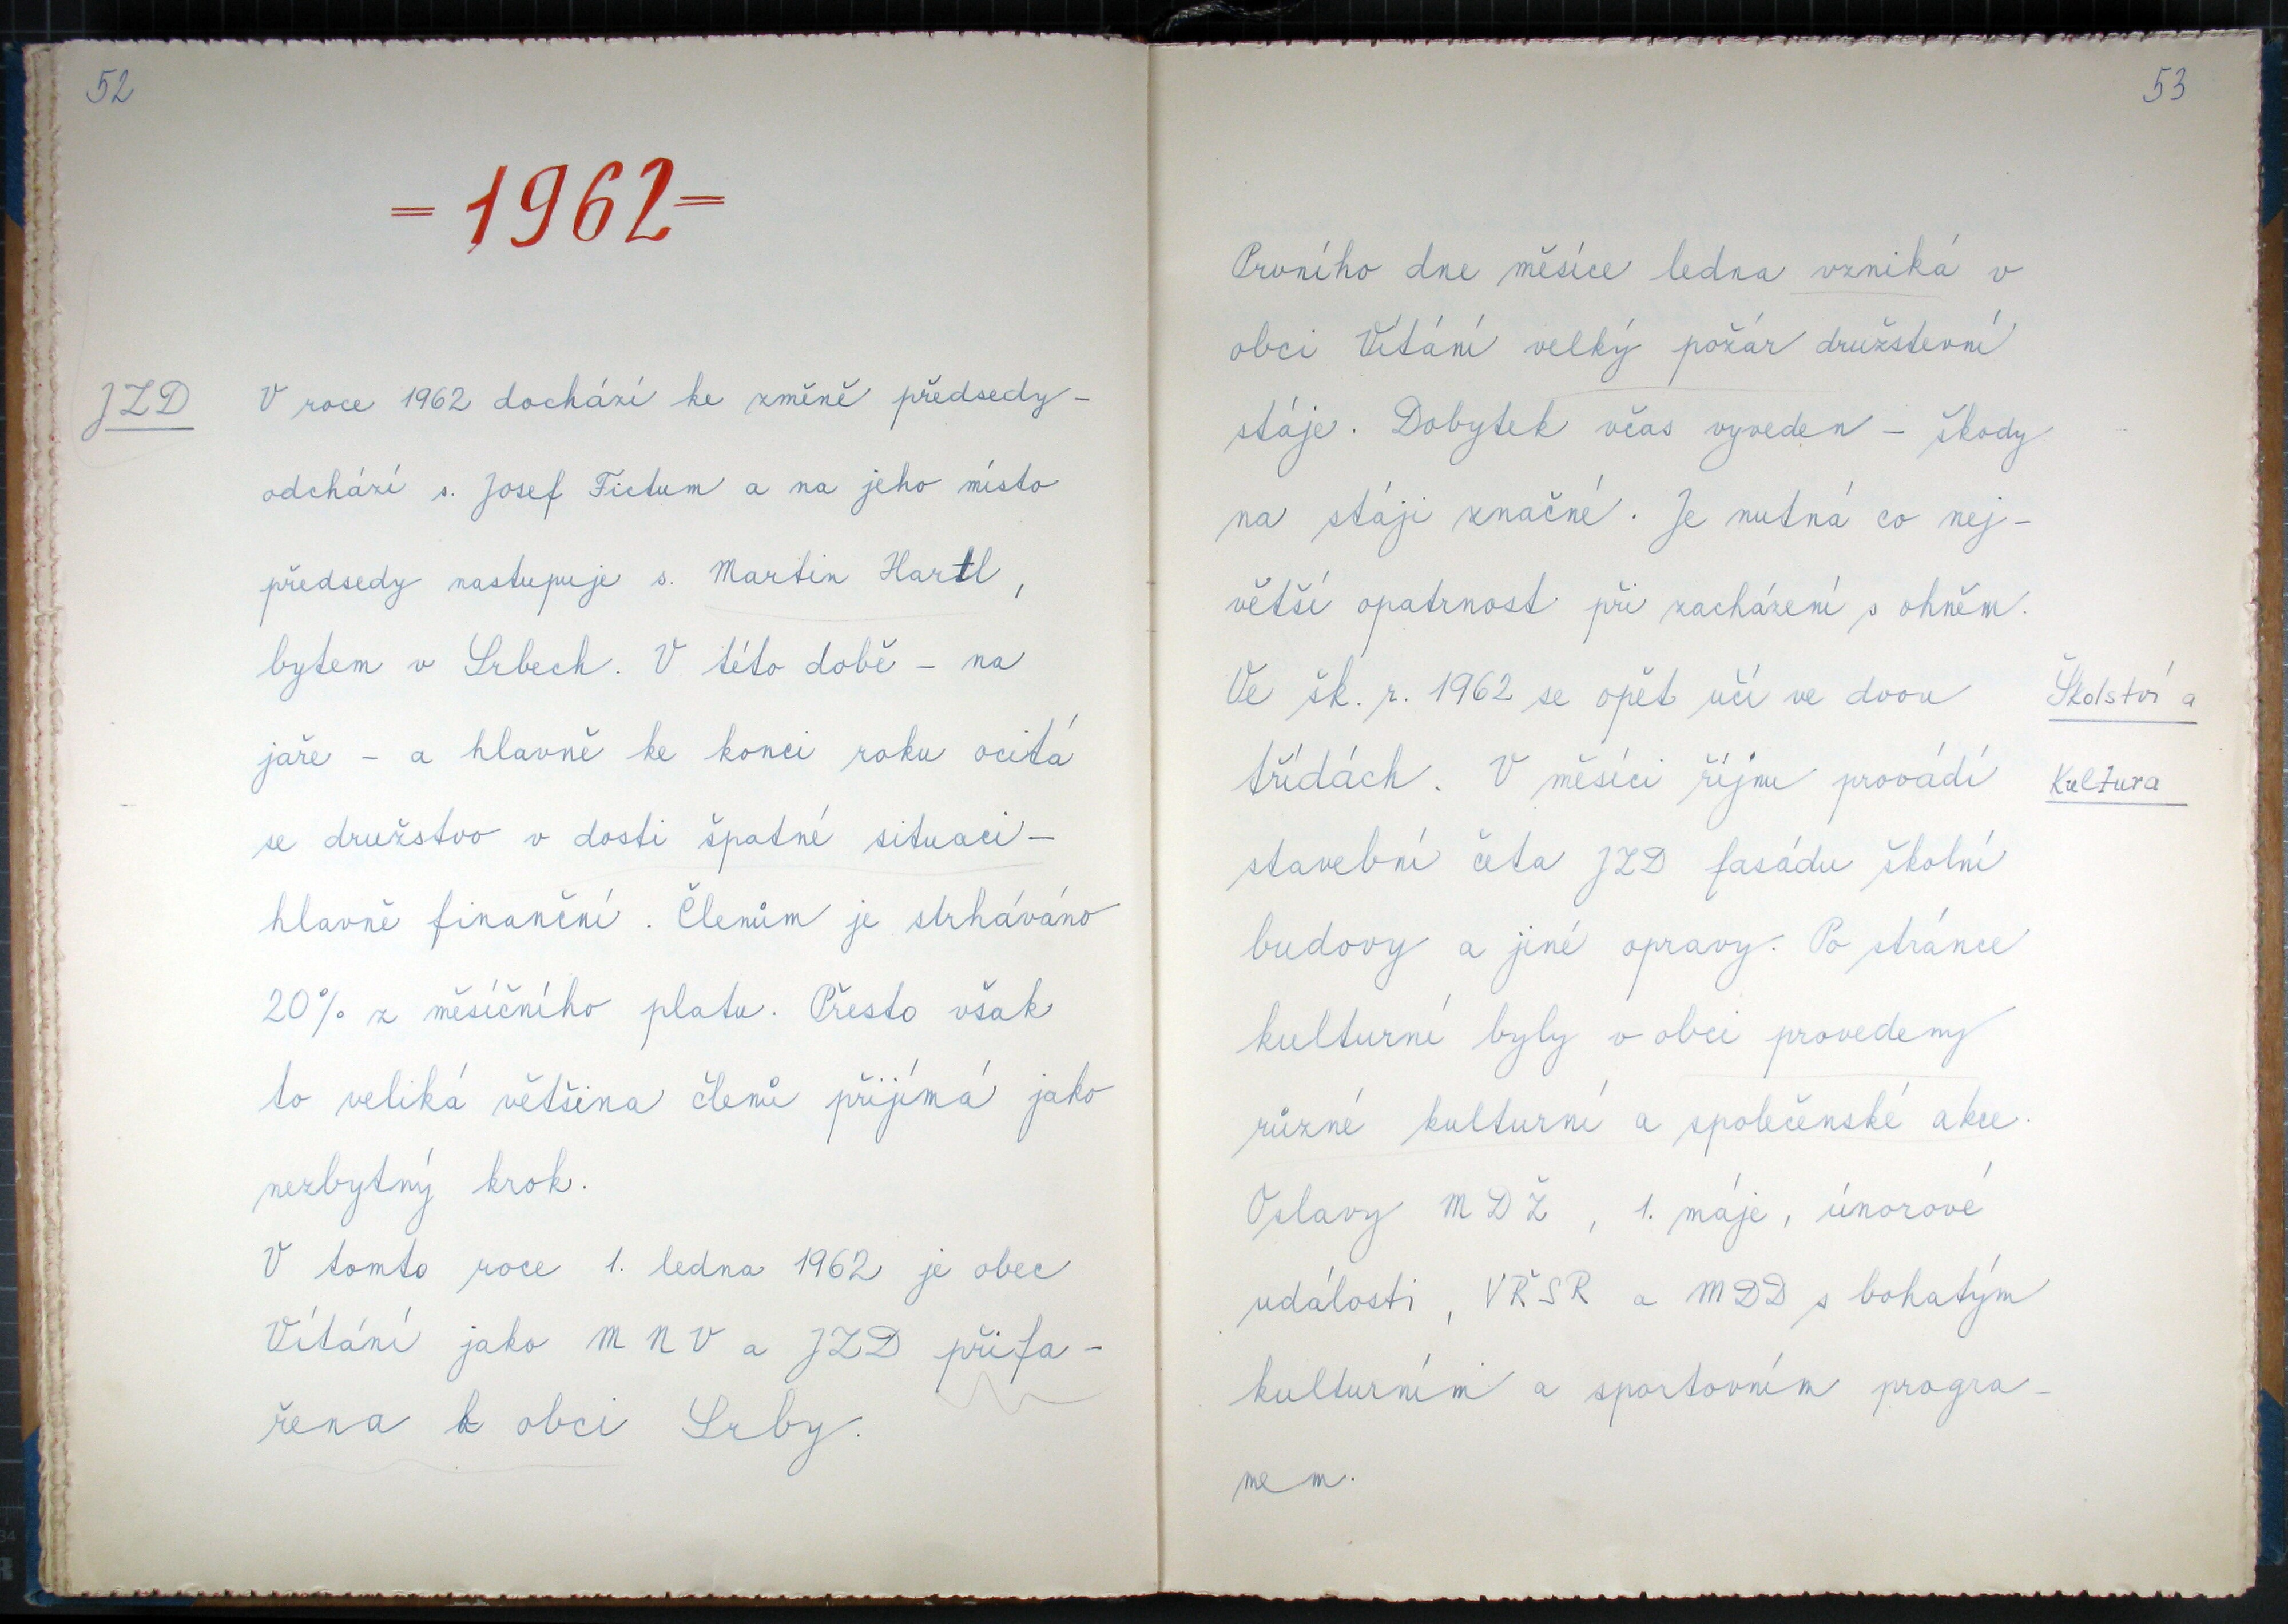 52
= 1962 =
JZD
V roce 1962 dochází ke změně předsedy -
odchází s. Josef Fictum a na jeho místo
předsedy nastupuje s. Martin Hartl,
bytem v Srbech. V této době - na
jaře - a hlavně ke konci roku ocitá
se družstvo v dosti špatné situaci -
hlavně finanční. Členům je strháváno
20% z měsíčního platu. Přesto však
to veliká většina členů přijímá jako
nezbytný krok.
V tomto roce 1. ledna 1962 je obec
Vítání jako MNV a JZD přifa-
řena k obci Srby.
53
Prvního dne měsíce ledna vzniká v
obci Vítání velký požár družstevní
stáje. Dobytek včas vyveden - škody
na stáji značné. Je nutná co nej-
větší opatrnost při zacházení s ohněm.
Ve šk. r. 1962 se opět učí ve dvou
třídách. V měsíci říjnu provádí
stavební četa JZD fasádu školní
budovy a jiné opravy. Po stránce
kulturní byly v obci provedeny
různé kulturní a společenské akce.
Oslavy MDŽ, 1. máje, únorové
události, VŘSR a MDD s bohatým
kulturním a sportovním progra-
mem.
Školství a
Kultura